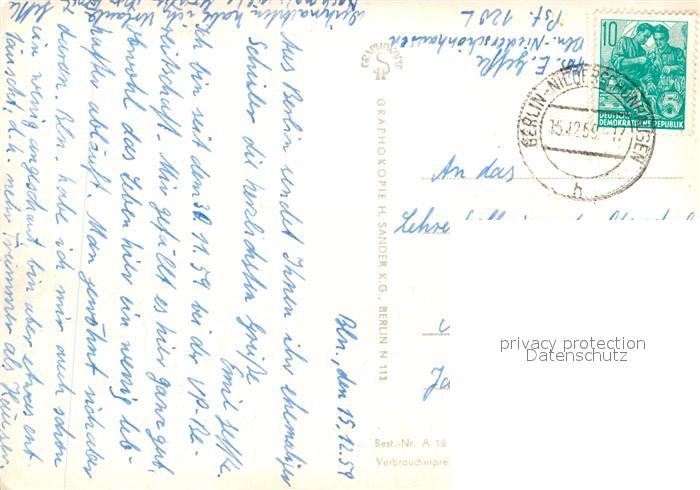 Bln., den 15.12.59
Aus Berlin sendet Ihnen ihr ehemaliger
Schüler die herzlichsten Grüße
Emil Jeffke.
Ich bin seit dem 30.11.59 bei der VP-Be-
reitschaft. Mir gefällt es hier ganz gut,
obwohl das Leben hier ein wenig leb-
hafter abläuft. Man gewöhnt sich aber
daran. Bln. habe ich mir auch schon
ein wenig angeschaut bin aber etwas ent-
täuscht, d.h. mehr Trümmer als Häuser.
Weihnachten habe ich Urlaub
GRAPHOKOPIE
GRAPHOKOPIE H. SANDER K.G., BERLIN N 113
Abs. E. Jeffke
Bln.-Niederschönhausen
Pst. 120 L
10
5
DEUTSCHE
DEMOKRATISCHE REPUBLIK
BERLIN-NIEDERSCHÖNHAUSEN
15.12.59.-17
h
An das
privacy protection
Datenschutz
Best.-Nr. A 16
Verbraucherpre